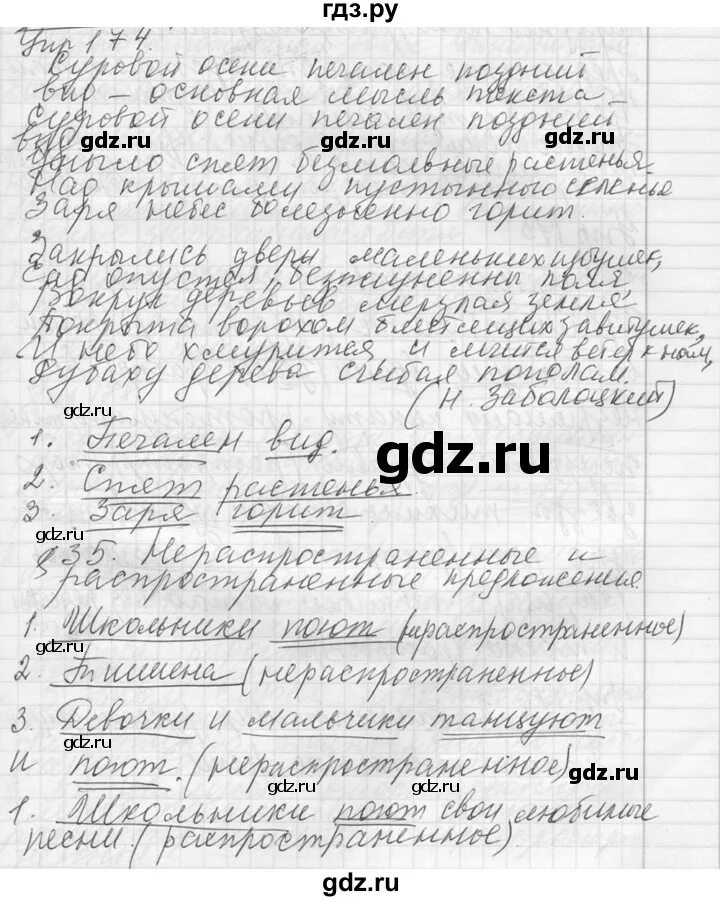 гдз.ру
Упр 174.
Суровой осени печален поздний
вид – основная мысль текста –
Суровой осени печален поздний
вид
Уныло спят безмолвные растенья.
Над крышами пустынного селенья
Заря небес болезненно горит.
Закрылись двери маленьких избушек,
Сад опустел, безжизненны поля,
Вокруг деревьев мерзлая земля
Покрыта ворохом блестящих завитушек,
И небо хмурится, и мчится ветер к нам,
Рубаху дерева сгибая пополам.
(Н. Заболоцкий)
1. Печален вид.
2. Спят растенья
3. Заря горит
§35. Нераспространенные и
распространенные предложения.
1. Школьники поют (нераспространенное)
2. Тишина (нераспространенное)
3. Девочки и мальчики танцуют
и поют. (нераспространенное)
1. Школьники поют свои любимые
песни. (распространённое)
gdz.ru
gdz.ru
gdz.ru
gdz.ru
gdz.ru
gdz.ru
gdz.ru
gdz.ru
gdz.ru
gdz.ru